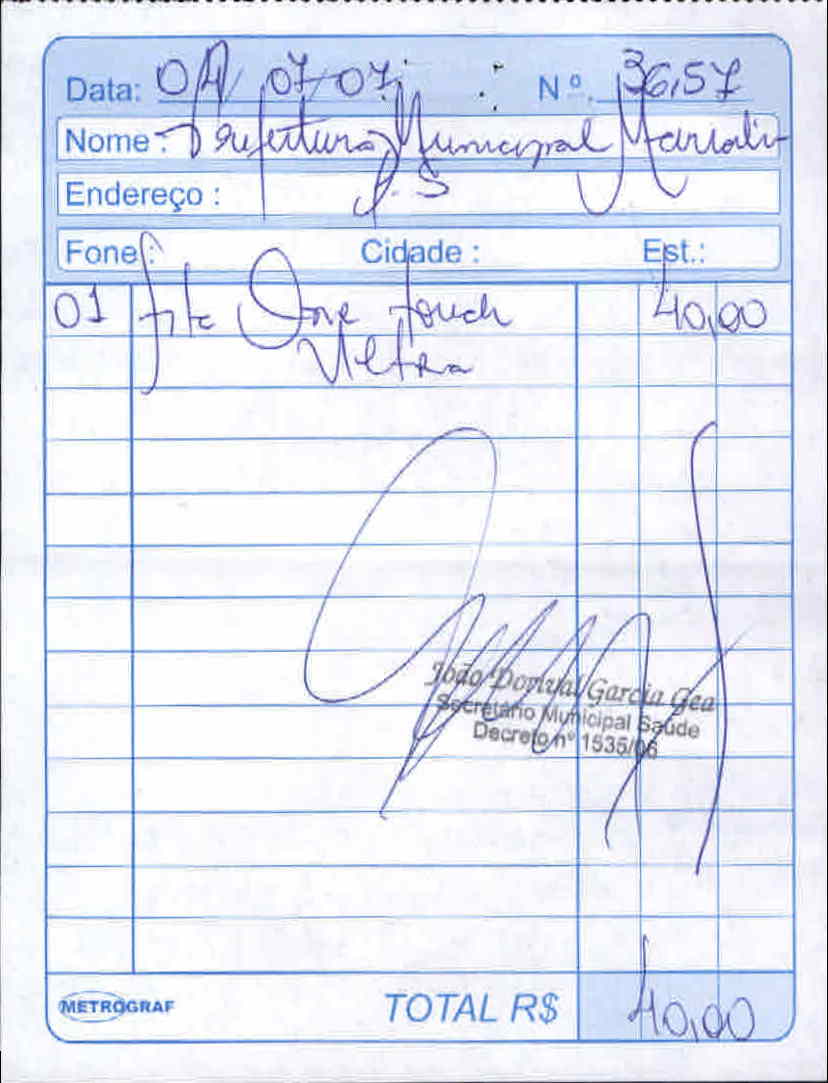 Data: 04/07/07 Nº. 36,57
Nome: Prefeitura Municipal
Endereço : J. S
Fone : Cidade : Est.:
01 fita One touch 40,00
Ultra
João Dorival Garcia Gea
Secretário Municipal Saúde
Decreto nº 1535/06
METROGRAF TOTAL R$ 40,00